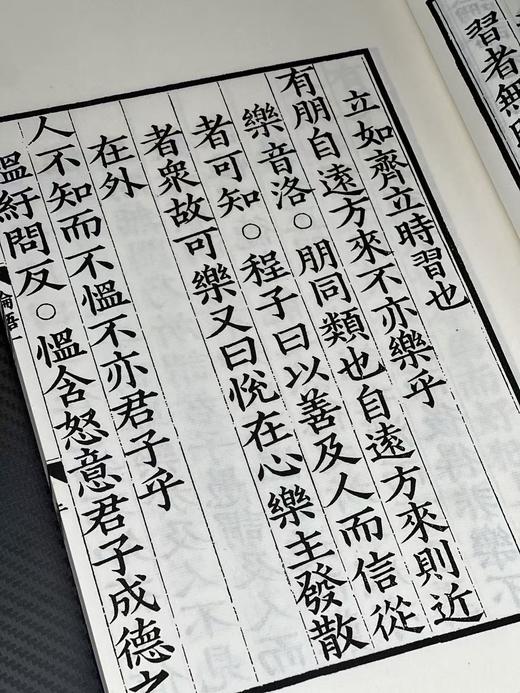 習者無
立如齊立時習也
有朋自遠方來不亦樂乎
樂音洛○朋同類也自遠方來則近
者可知○程子曰以善及人而信從
者衆故可樂又曰悅在心樂主發散
在外
人不知而不慍不亦君子乎
慍紆問反○慍含怒意君子成德之
論語一